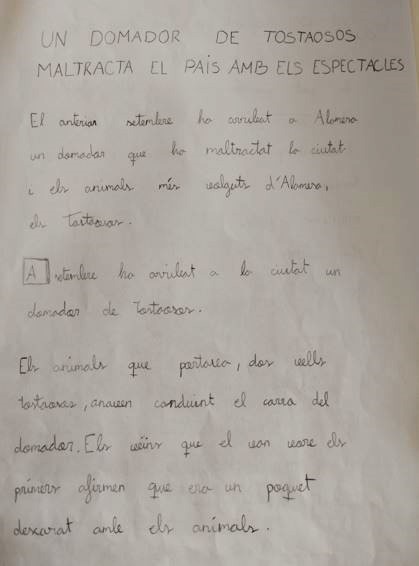 UN DOMADOR DE TOSTAOSOS
MALTRACTA EL PAÍS AMB ELS ESPECTACLES
El anterior setembre ha arribat a Alamera
un domador que ha maltractat la ciutat
i els animals més volguts d'Alamera,
els Tostaosos.
A setembre ha arribat a la ciutat un
domador de Tostaosos.
Els animals que portava, dos vells
tostaosos, anaven conduint el carro del
domador. Els veïns que el van veure els
primers afirmen que era un poquet
descarat amb els animals.